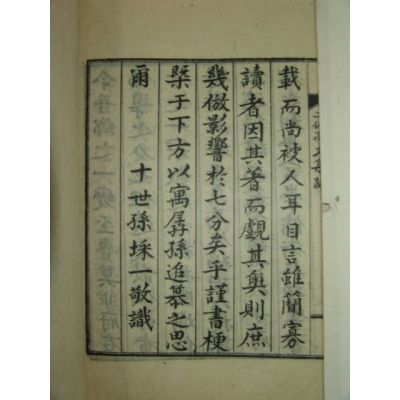 載而尚被人耳目言雖簡寡
讀者因其著而覷其奧則庶
幾倣影響於七分矣乎謹書梗
槩于下方以寓孱孫追慕之思
爾　十世孫埰一敬識